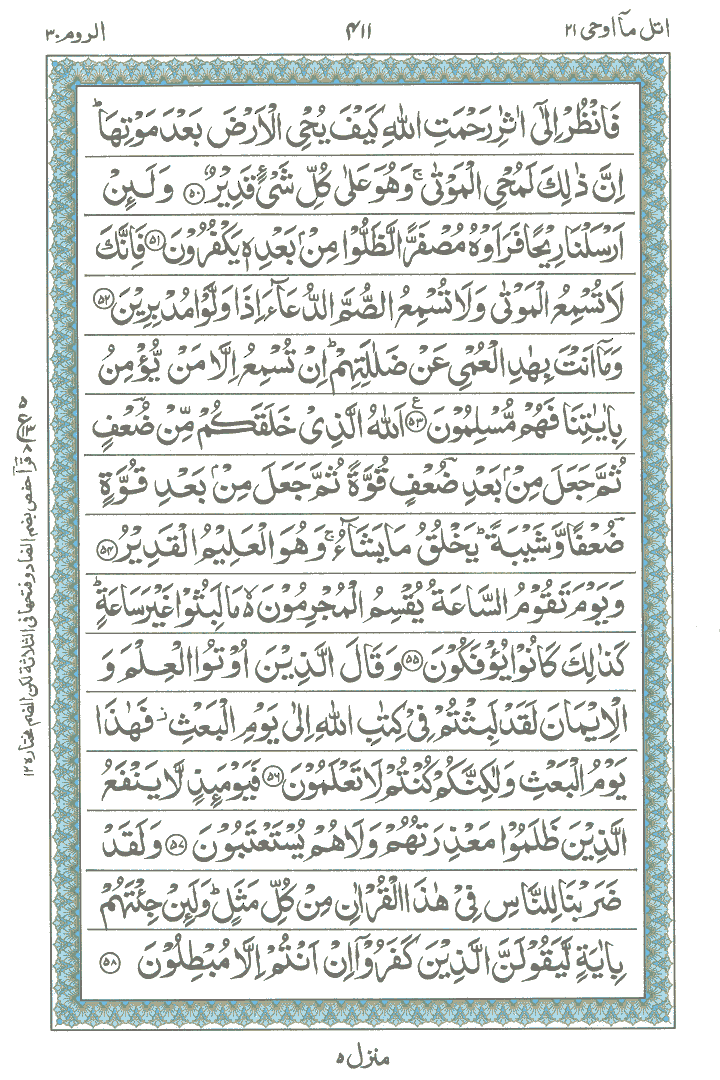 اتل مآ اوحی ۲۱
۴۱۱
الروم ۳۰
فَانْظُرْ اِلٰٓى اٰثٰرِ رَحْمَتِ اللّٰهِ كَيْفَ يُحْىِ الْاَرْضَ بَعْدَ مَوْتِهَا ؕ
اِنَّ ذٰلِكَ لَمُحْىِ الْمَوْتٰى ۚ وَهُوَ عَلٰى كُلِّ شَىْءٍ قَدِيْرٌ ۝۵۰ وَلَئِنْ
اَرْسَلْنَا رِيْحًا فَرَاَوْهُ مُصْفَرًّا لَّظَلُّوْا مِنْۢ بَعْدِهٖ يَكْفُرُوْنَ ۝۵۱ فَاِنَّكَ
لَا تُسْمِعُ الْمَوْتٰى وَلَا تُسْمِعُ الصُّمَّ الدُّعَآءَ اِذَا وَلَّوْا مُدْبِرِيْنَ ۝۵۲
وَمَاۤ اَنْتَ بِهٰدِ الْعُمْىِ عَنْ ضَلٰلَتِهِمْ ؕ اِنْ تُسْمِعُ اِلَّا مَنْ يُّؤْمِنُ
بِاٰيٰتِنَا فَهُمْ مُّسْلِمُوْنَ ۝۵۳ ع اَللّٰهُ الَّذِىْ خَلَقَكُمْ مِّنْ ضُعْفٍ
ثُمَّ جَعَلَ مِنْۢ بَعْدِ ضُعْفٍ قُوَّةً ثُمَّ جَعَلَ مِنْۢ بَعْدِ قُوَّةٍ
ضُعْفًا وَّشَيْبَةً ؕ يَخْلُقُ مَا يَشَآءُ ۚ وَهُوَ الْعَلِيْمُ الْقَدِيْرُ ۝۵۴
وَيَوْمَ تَقُوْمُ السَّاعَةُ يُقْسِمُ الْمُجْرِمُوْنَ ۙ مَا لَبِثُوْا غَيْرَ سَاعَةٍ ؕ
كَذٰلِكَ كَانُوْا يُؤْفَكُوْنَ ۝۵۵ وَقَالَ الَّذِيْنَ اُوْتُوا الْعِلْمَ وَ
الْاِيْمَانَ لَقَدْ لَبِثْتُمْ فِىْ كِتٰبِ اللّٰهِ اِلٰى يَوْمِ الْبَعْثِ ز فَهٰذَا
يَوْمُ الْبَعْثِ وَلٰكِنَّكُمْ كُنْتُمْ لَا تَعْلَمُوْنَ ۝۵۶ فَيَوْمَئِذٍ لَّا يَنْفَعُ
الَّذِيْنَ ظَلَمُوْا مَعْذِرَتُهُمْ وَلَا هُمْ يُسْتَعْتَبُوْنَ ۝۵۷ وَلَقَدْ
ضَرَبْنَا لِلنَّاسِ فِىْ هٰذَا الْقُرْاٰنِ مِنْ كُلِّ مَثَلٍ ؕ وَلَئِنْ جِئْتَهُمْ
بِاٰيَةٍ لَّيَقُوْلَنَّ الَّذِيْنَ كَفَرُوْۤا اِنْ اَنْتُمْ اِلَّا مُبْطِلُوْنَ ۝۵۸
قرأ حفص بضم الضاد وفتحها فی الثلاثة لکن الضم مختاره ۱۲
منزل ۵